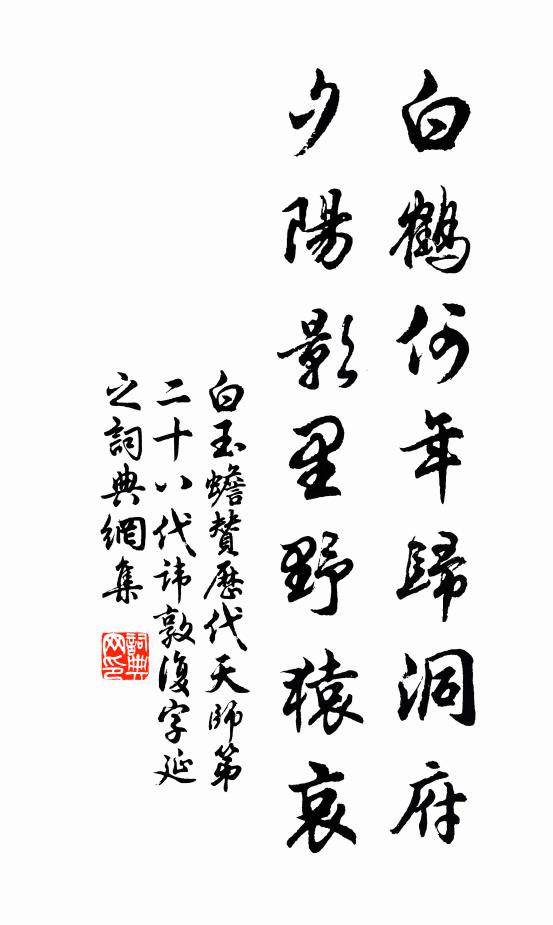 白鶴何年歸洞府
夕陽影里野猿哀
白玉蟾贊歷代天師第
二十八代諱敦復字延
之詞典網集
詞典网印